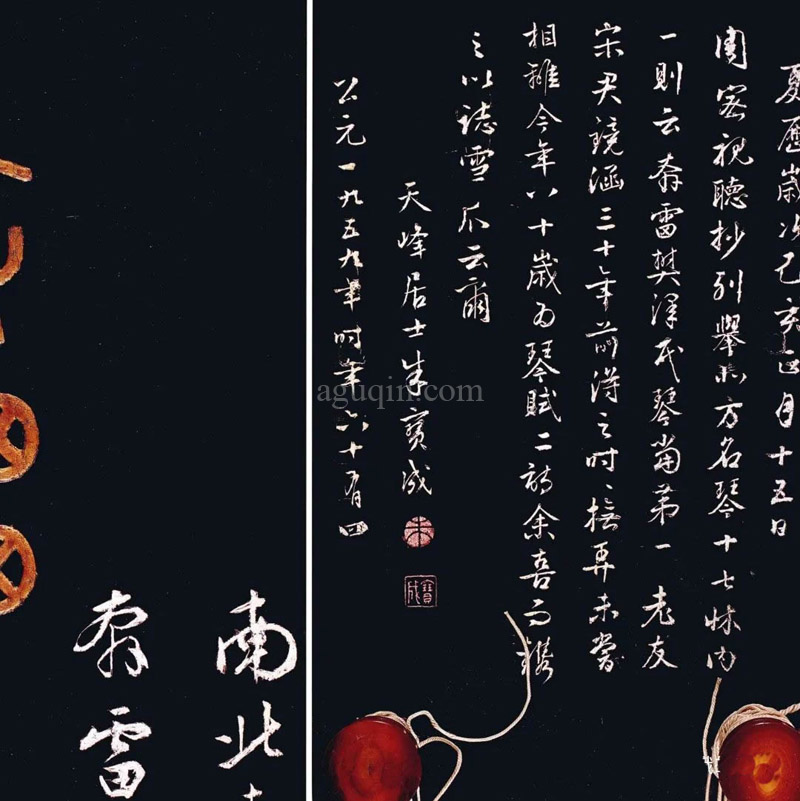 夏歷歲次己亥正月十五日
周密視聽抄列舉北方名琴十七牀內
一則云奔雷樊澤民琴當第一老友
宋君鏡涵三十年前得之時時撫弄未嘗
相離今年八十歲為琴賦二詩余喜而鐫
之以誌雪爪云爾
天峰居士朱寶成
公元一九五九年時年六十有四
朱
寶成
南北
奔雷
aguqin.com